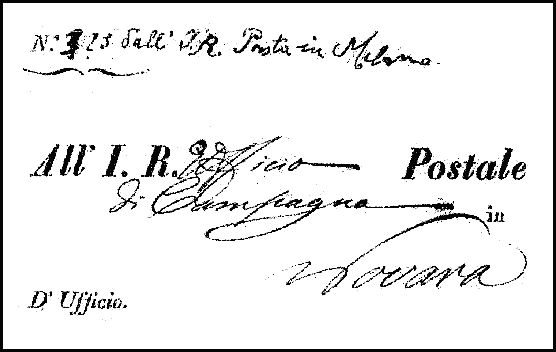 N.° 325 dall' I. R. Posta in Milano.
All' I. R. Ufficio Postale
di Campagna in
Novara
D' Ufficio.